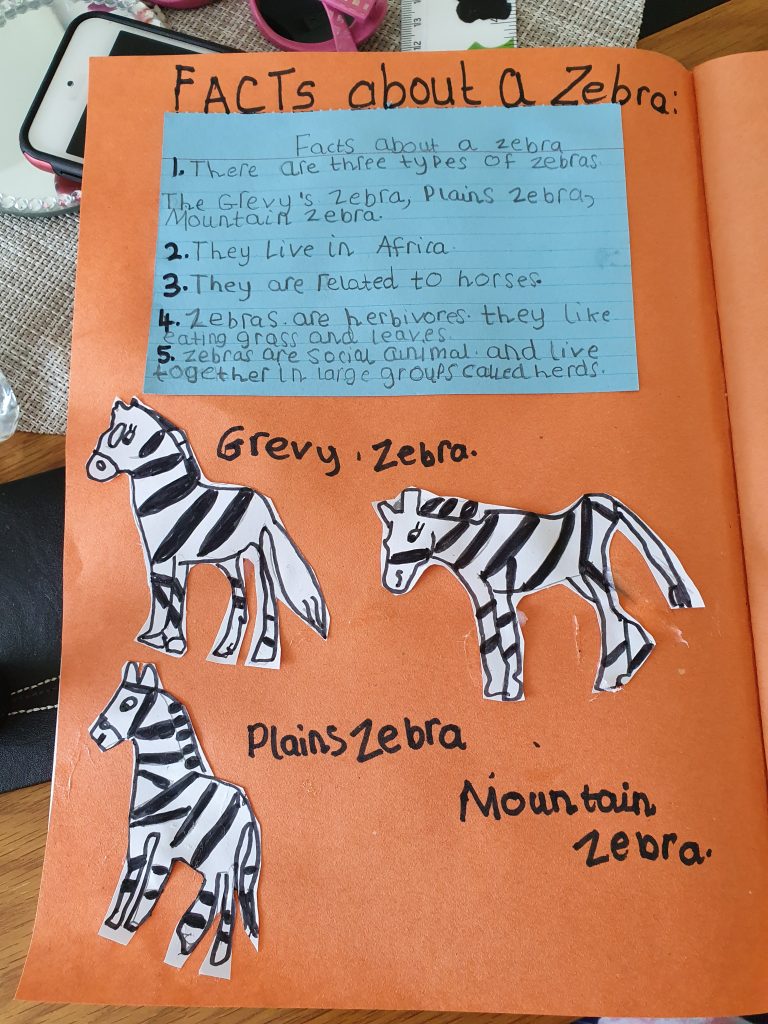 FACTS about a Zebra:
Facts about a zebra
1. There are three types of zebras
The Grevy's Zebra, Plains Zebra,
Mountain Zebra.
2. They Live in Africa.
3. They are related to horses.
4. Zebras. are herbivores. they like
eating grass and leaves.
5. Zebras are social animal. and live
together in large groups called herds.
Grevy. Zebra.
Plains Zebra
Mountain
Zebra.
12 13